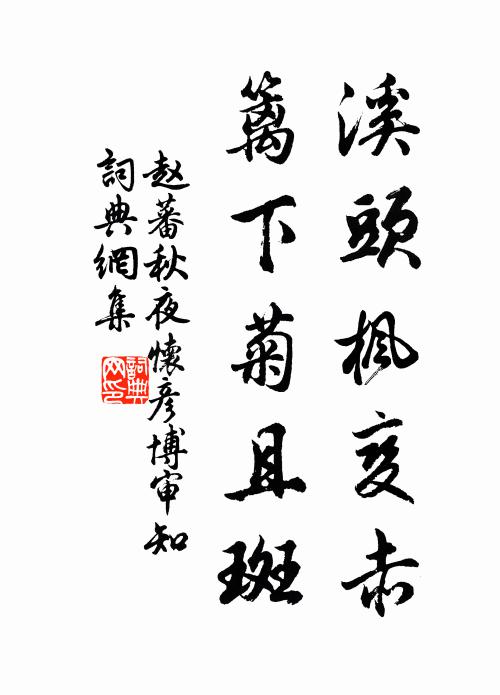 溪頭楓变赤
籬下菊且斑
赵蕃秋夜懷彦博审知
詞典網集
詞典网印